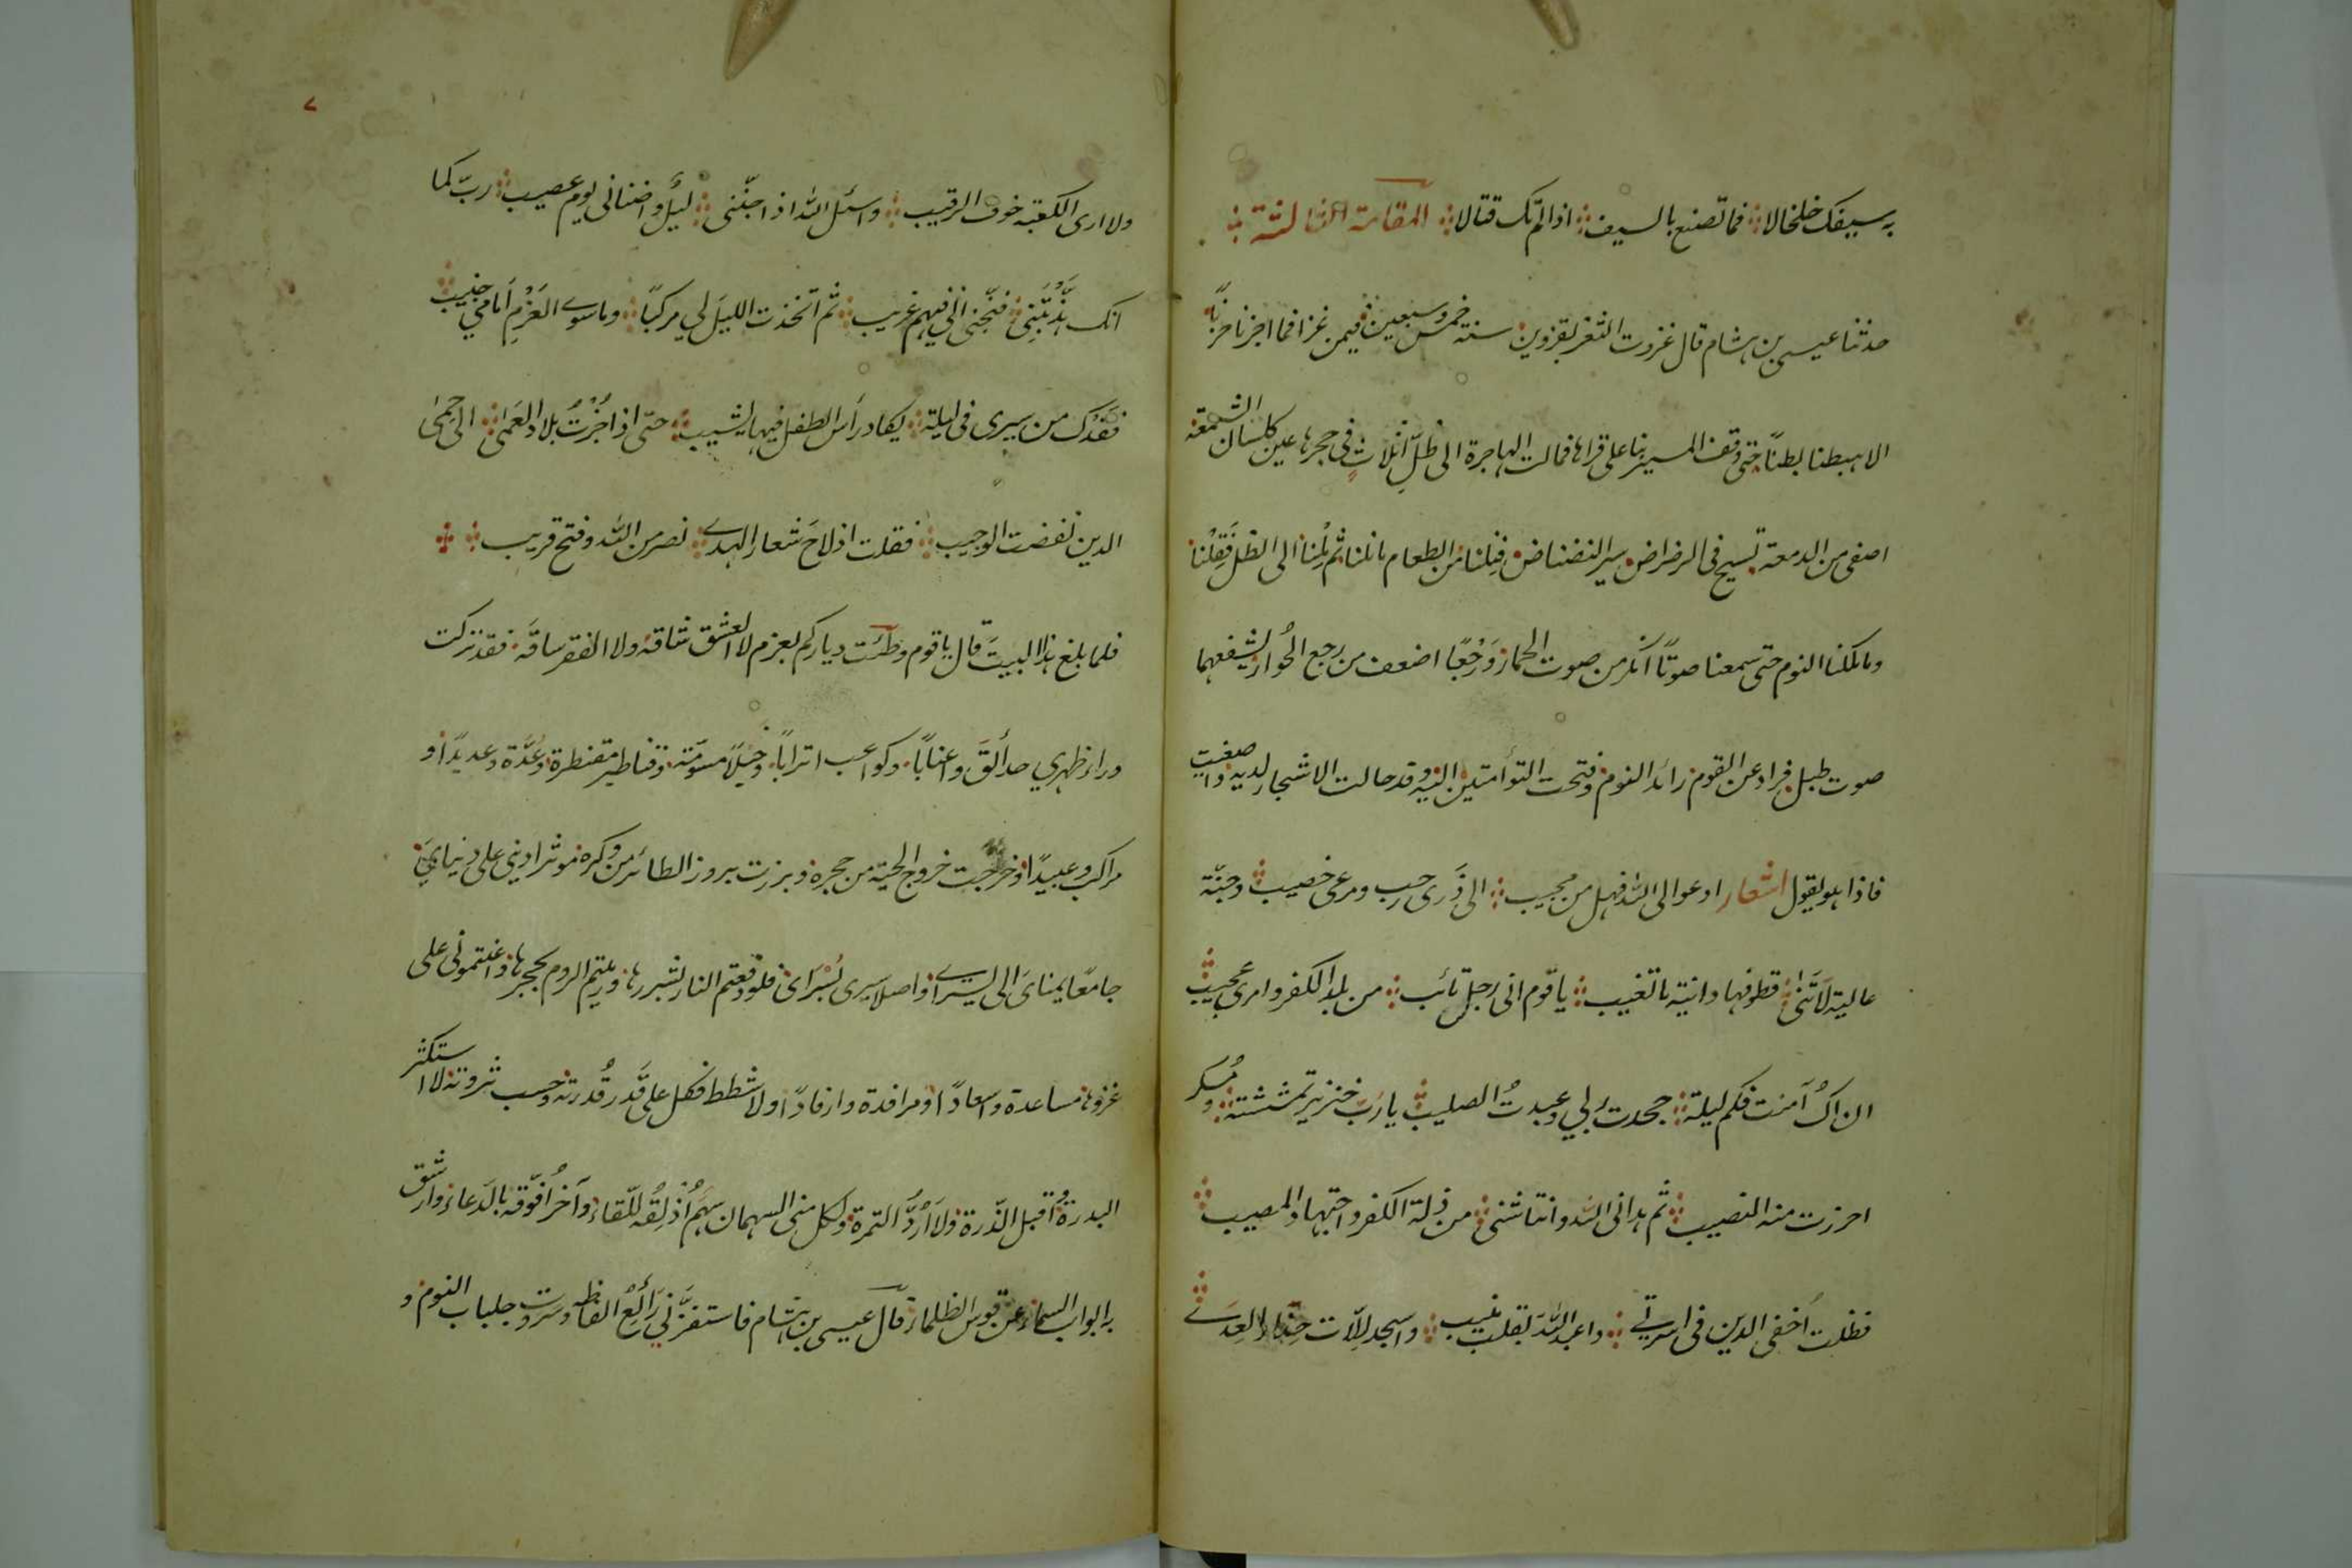 به سيفك خلخالا فما تصنع بالسيف اذا لم تك قتالا المقامة الثالثة
حدثنا عيسى بن هشام قال غزوت الثغر بقزوين سنة خمس وسبعين فيمن غزا فما اجزنا حزنًا
الا هبطنا بطنًا حتى وقف المسير بنا على قراها فمالت الهاجرة الى ظلّ اثلاثٍ في حجرها عين كلسان الشمعة
اصفى من الدمعة تسيح في الرضراض سير النضناض فنلنا من الطعام ما نلنا ثم مِلنا الى الظل فَقِلْنا
وما ملكنا النوم حتى سمعنا صوتًا انكر من صوت الحمار وَرَجْعًا اضعف من رجع الحُوار يشفعهما
صوت طبل فراد عن القوم رائد النوم وفتحت التوأمتين اليه وقد حالت الاشجار لديه واصغيت
فاذا هو يقول اشعار ادعو الى الله فهل من مجيب الى ذَرى رحب ومرعى خصيب وجنّة
عالية لاتَنى قطوفها دانية ما تغيب يا قوم انى رجل تائب من بلد الكفر وامرى عجيب
ان اكُ آمنت فكم ليلة جحدت ربي وعبدتُ الصليب يا رب خنزير تمششته ومُسكر
احرزت منه النصيب ثم هدانى الله وانتاشنى من ذلة الكفر اجتهاد المصيب
فظلت أخفى الدين في اسرتي واعبد الله بقلب منيب واسجد للّات حذار العِدَى
ولا ارى الكعبة خوف الرقيب واسئل الله اذا جنّنى ليلٌ واضنانى يوم عصيب ربّ كما
انك هذّبْتَنِى فنجّنى انّى فيهم غريب ثم اتخذت الليلَ لي مركبًا وما سوى العَزْمِ أمامي جنيب
فقدك من سيرى فى ليلة يكاد رأس الطفل فيها يشيب حتى اذا جُزْتُ بلاد العَمَى الى حِمَى
الدين نفضت الوجيب فقلت اذ لاحَ شعار الهدى نصر من الله وفتح قريب
فلما بلغ هذا البيتَ قال يا قوم وطئت دياركم بعزم لا العشق شاقه ولا الفقر ساقَه فقد تركت
وراء ظهري حدائقَ واعنابًا وكواعب اترابًا وخَيلًا مسوّمة وقناطير مقنطرة وعُدّة وعديدًا و
مراكب وعبيدًا وخرجت خروج الحية من حجره وبرزت بروز الطائر من وكره موثرا دينى على دنياىَ
جامعًا يمناىَ الى يسراى واصلا سيرى بُسْرَاىَ فلو دفعتم النار بشررها ورميتم الروم بحجرها واعنتمونى على
غزوها مساعدة واسعادًا ومرافدة وارفادًا ولا شطط فكل على قَدَر قُدرته وحسب ثروته لا استكثر
البدرة واقبل الذّرة ولا اردّ التمرة ولكل منى السهمان سَهْمٌ اُذلِقُه للّقاء وآخرُ افوّقه بالدعاء وارشق
به ابواب السماء عن قوس الظلماء قال عيسى بن هشام فاستفزّني رائعُ الفاظه وسروت جلباب النوم و